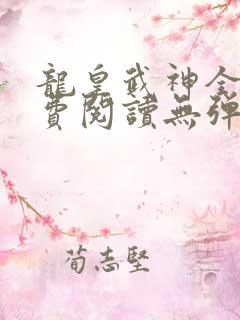 龍皇武神全
費閱讀無彈
荀志堅